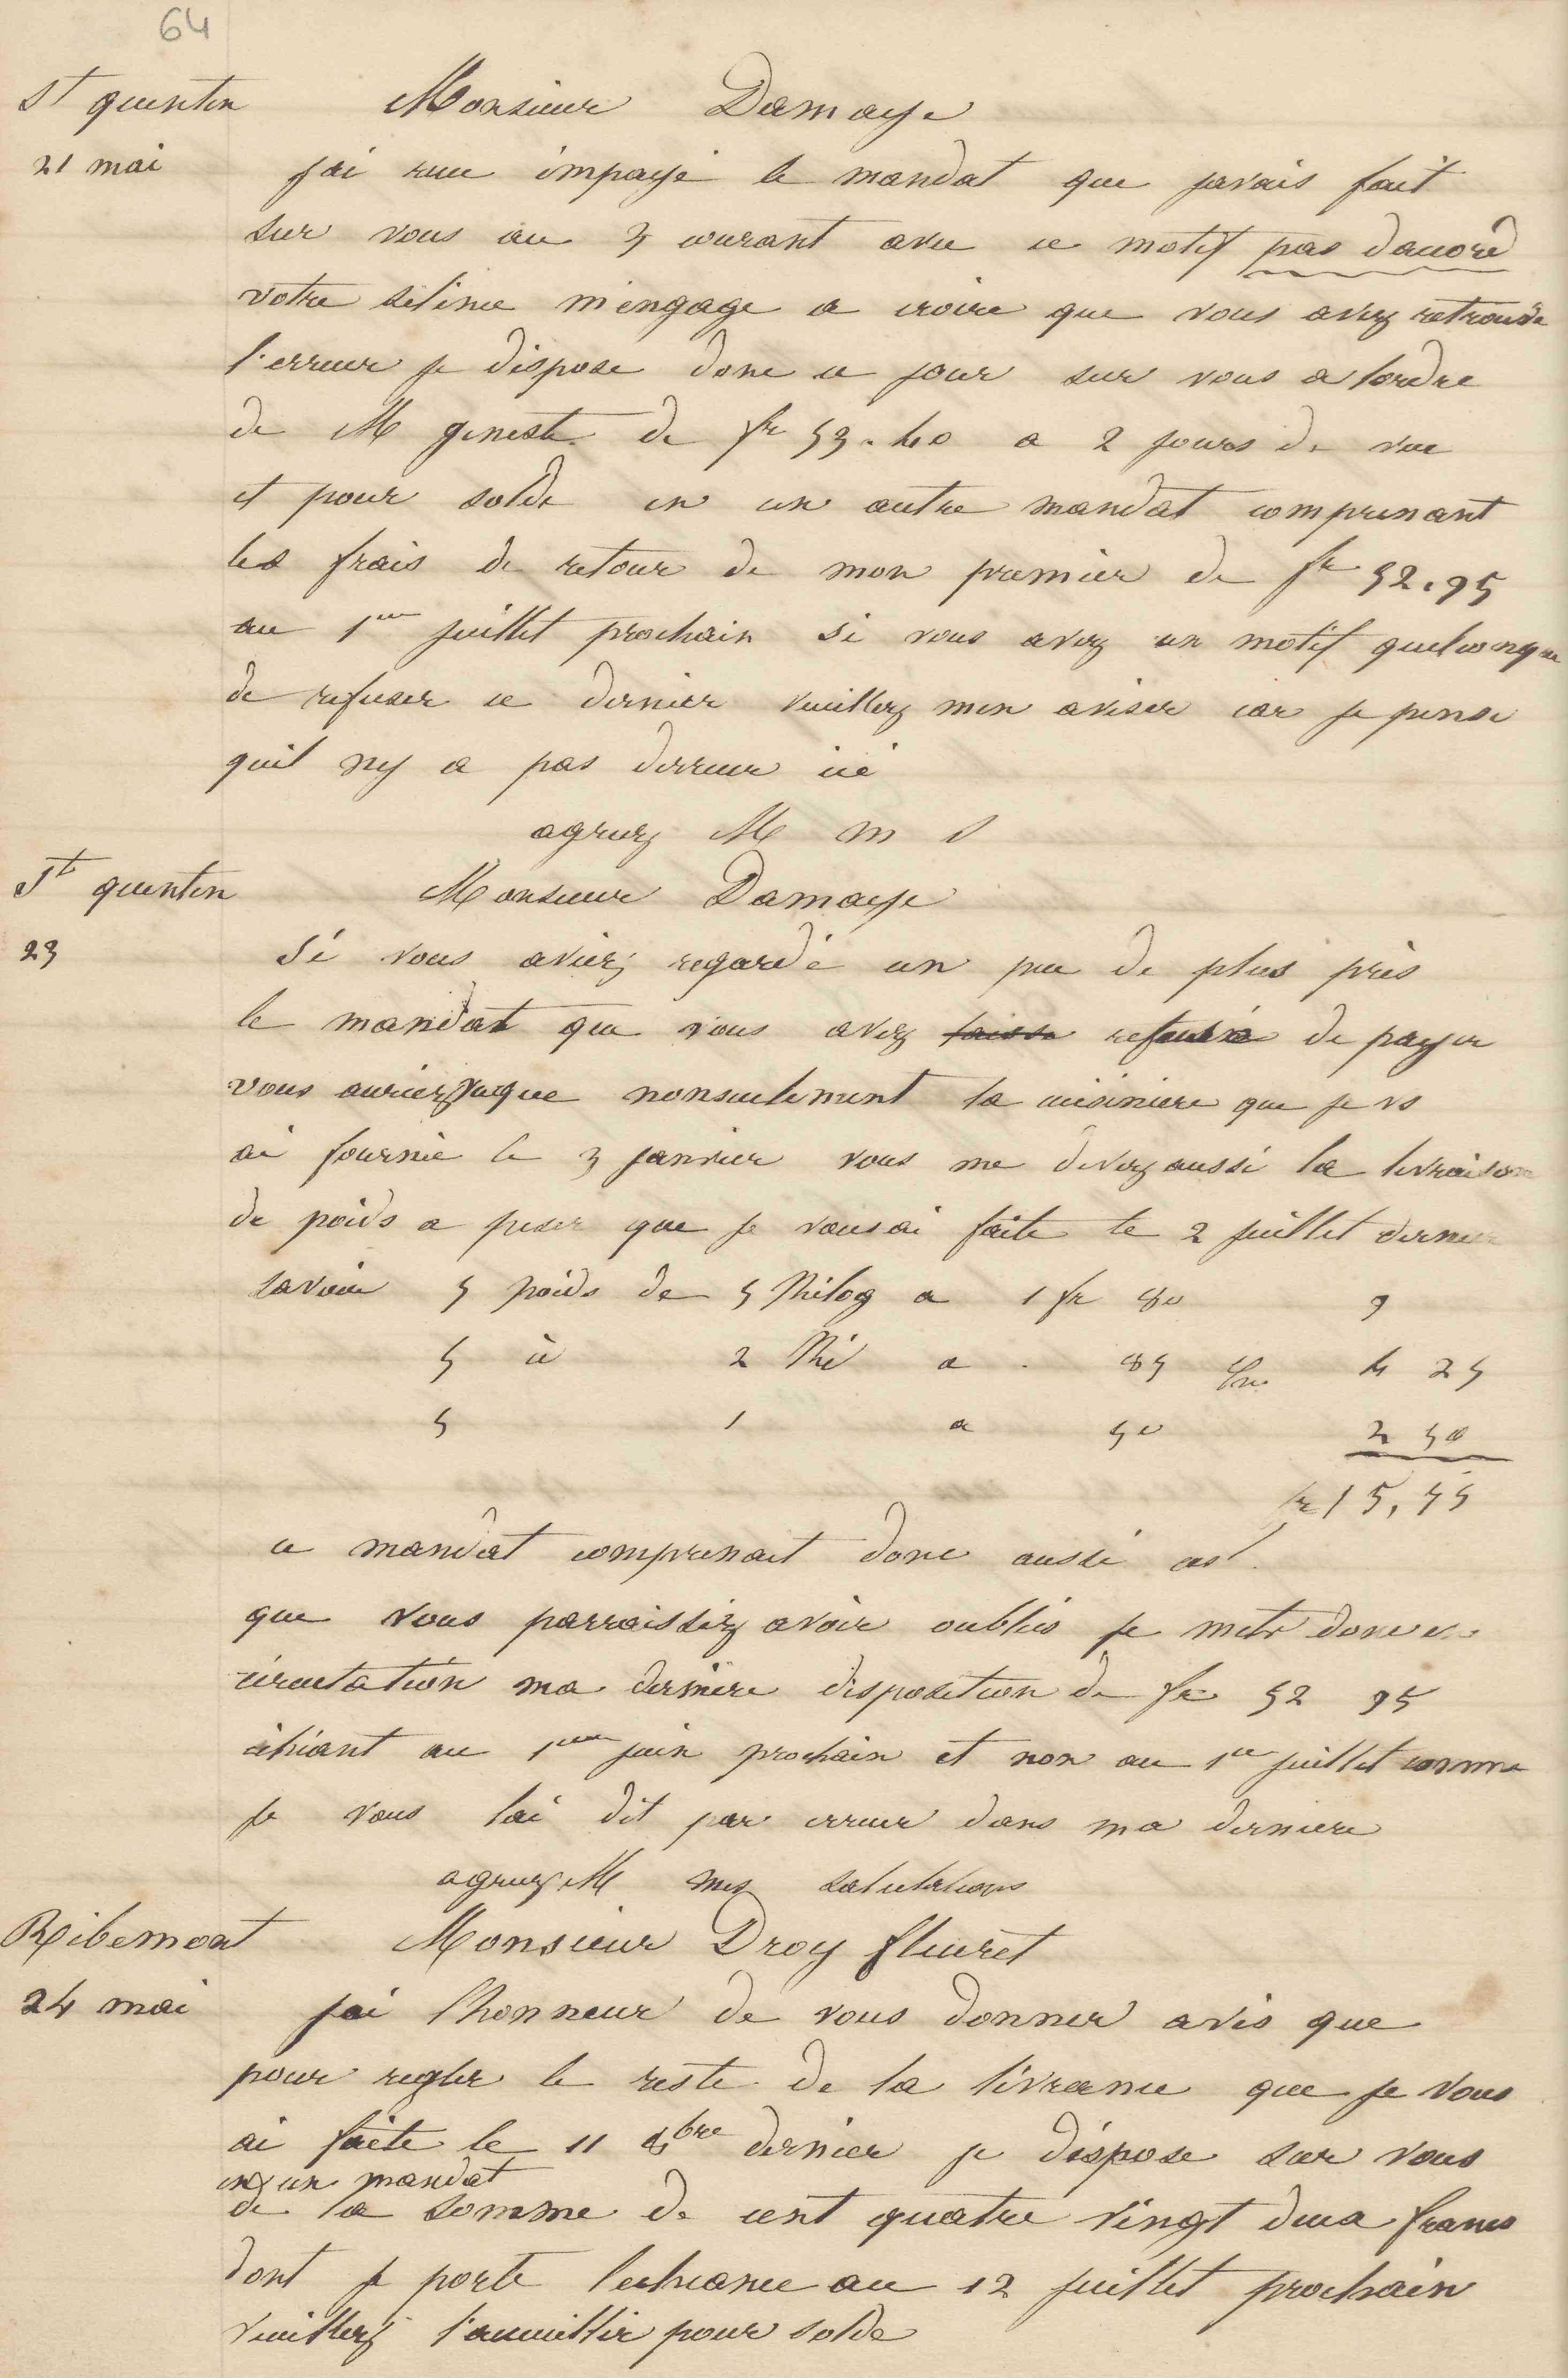 64
St quentin Monsieur Damaye
21 mai jai recu impayé le mandat que javais fait
sur vous au 5 courant avec ce motif pas daccord
votre silince m'engage a croire que vous avez retrouvé
l'erreur je dispose donc ce jour sur vous a lordre
de M geneste de fr 53.40 a 2 jours de vue
et pour solde en un autre mandat comprenant
les frais de retour de mon premier de fr 52.95
au 1er juillet prochain si vous avez un motif quelconque
de refuser ce dernier veuillez men aviser car je pense
quil ny a pas derreur ici
agreez M m s
St quentin Monsieur Damaye
23 Si vous aviez regardé un peu de plus près
le mandat que vous avez laissé refusé de payer
vous auriez vu que nonseulement la cuisiniere que je vs
ai fournie le 3 janvier vous me devez aussi la livraison
de poids a peser que je vous ai faite le 2 juillet dernier
savoir 5 poids de 5 Kilog a 1 fr 80 9
5 à 2 Ki a . 85 4 25
5 1 a 50 2 50
fr 15,55
ce mandat comprenait donc aussi cet
que vous parraissiez avoir oubliés je mets donc en
circulation ma derniere disposition de fr 52 95
échéant au 1er juin prochain et non au 1er juillet comme
je vous lai dit par erreur dans ma derniere
agreez M mes salutations
Ribemont Monsieur Droy fleuret
24 mai jai l'honneur de vous donner avis que
pour regler le reste de la livrance que je vous
ai faite le 11 8bre dernier je dispose sur vous
en un mandat
de la somme de cent quatre vingt deux francs
dont je porte lecheance au 12 juillet prochain
veuillez l'accueillir pour solde